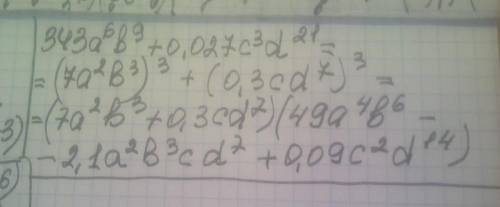 343a⁶b⁹ + 0,027c³d²¹ =
= (7a²b³)³ + (0,3cd⁷)³ =
3) = (7a²b³ + 0,3cd⁷)(49a⁴b⁶ -
- 2,1a²b³cd⁷ + 0,09c²d¹⁴)
6)